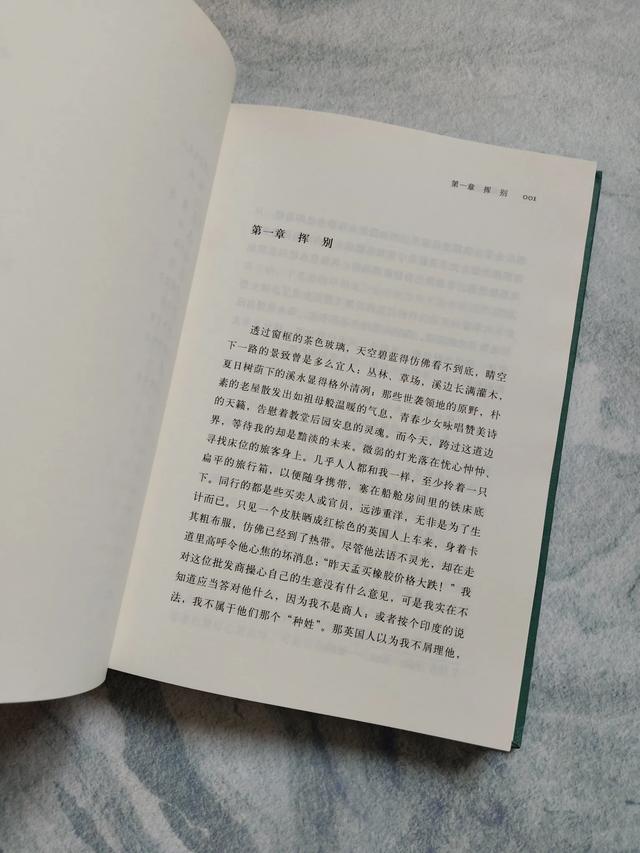 第一章 挥 别 001
第一章 挥 别
透过窗框的茶色玻璃，天空碧蓝得仿佛看不到底，晴空
下一路的景致曾是多么宜人：丛林、草场，溪边长满灌木，
夏日树荫下的溪水显得格外清洌；那些世袭领地的原野，朴
素的老屋散发出如祖母般温暖的气息，青春少女咏唱赞美诗
的天籁，告慰着教堂后园安息的灵魂。而今天，跨过这道边
界，等待我的却是黯淡的未来。微弱的灯光落在忧心忡忡、
寻找床位的旅客身上。几乎人人都和我一样，至少拎着一只
扁平的旅行箱，以便随身携带，塞在船舱房间里的铁床底
下。同行的都是些买卖人或官员，远涉重洋，无非是为了生
计而已。只见一个皮肤晒成红棕色的英国人上车来，身着卡
其粗布服，仿佛已经到了热带。尽管他法语不灵光，却在走
道里高呼令他心焦的坏消息：“昨天孟买橡胶价格大跌！”我
对这位批发商操心自己的生意没有什么意见，可是我实在不
知道应当答对他什么，因为我不是商人；或者按个印度的说
法，我不属于他们那个“种姓”。那英国人以为我不屑理他，